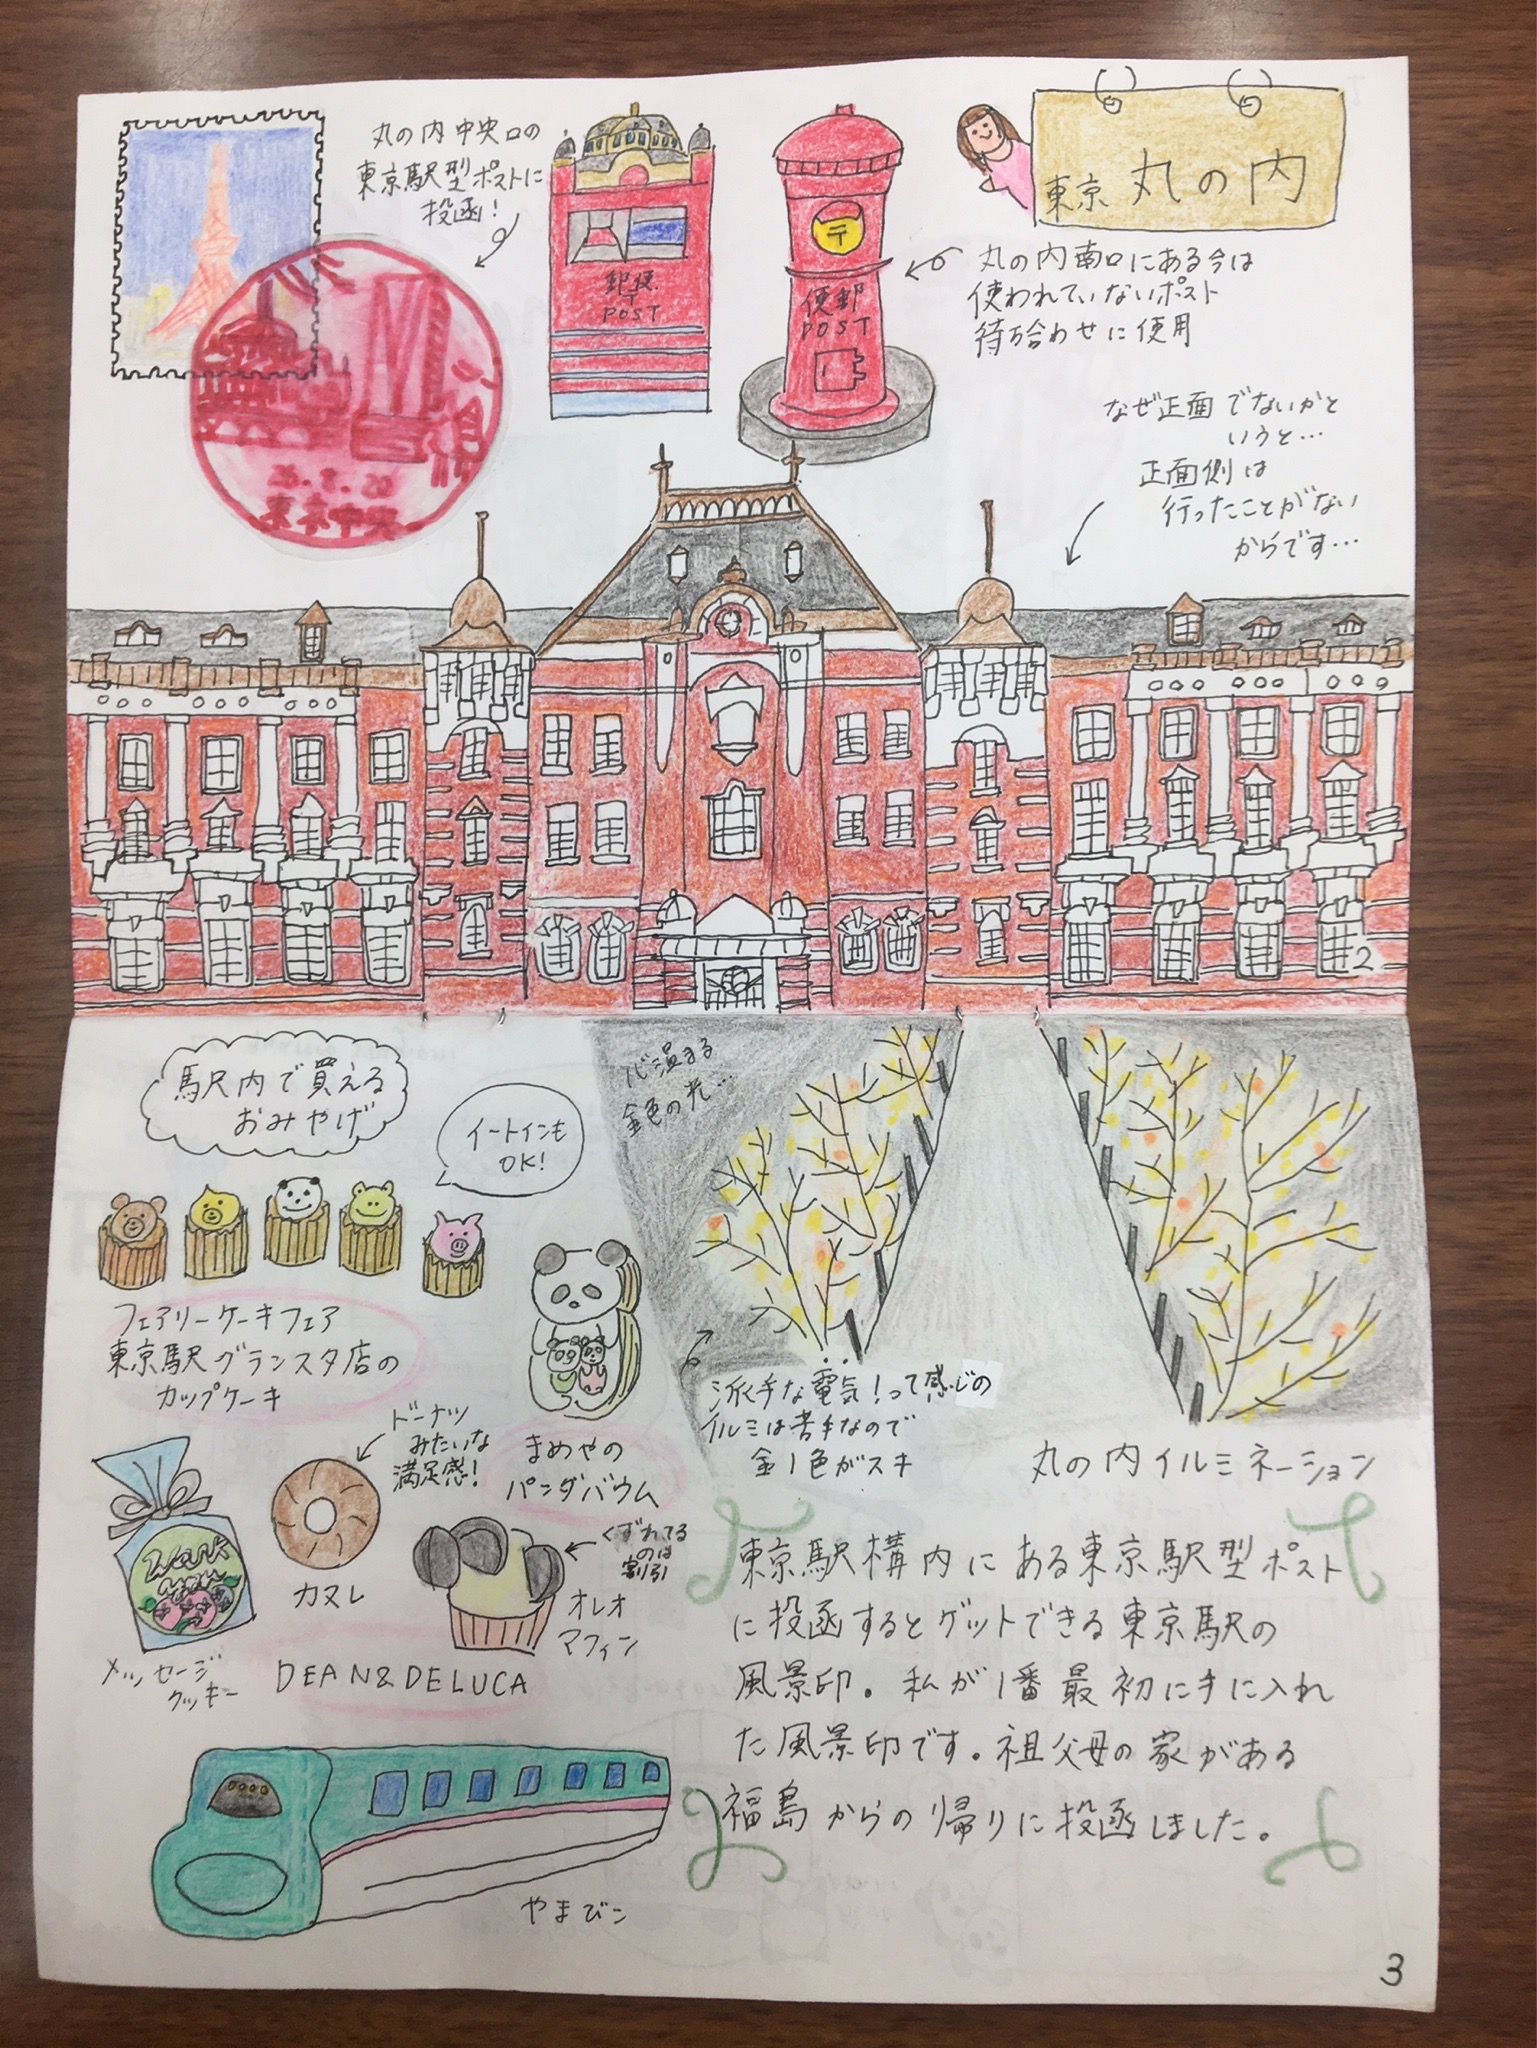 丸の内中央口の
東京駅型ポストに
投函!
郵便
〒
POST
〒
便郵
POST
東京 丸の内
丸の内南口にある今は
使われていないポスト
待ち合わせに使用
なぜ正面でないかと
いうと…
正面側は
行ったことがない
からです…
26.8.20
東京中央
2
駅内で買える
おみやげ
イートインも
OK!
フェアリーケーキフェア
東京駅グランスタ店の
カップケーキ
まめやの
パンダバウム
ドーナツ
みたいな
満足感!
カヌレ
くずれてる
のは
割引
オレオ
マフィン
メッセージ
クッキー
DEAN&DELUCA
やまびこ
心温まる
金色の光…
派手な電気!って感じの
イルミは苦手なので
金1色がスキ
丸の内イルミネーション
東京駅構内にある東京駅型ポスト
に投函するとゲットできる東京駅の
風景印。私が1番最初に手に入れ
た風景印です。祖父母の家がある
福島からの帰りに投函しました。
3